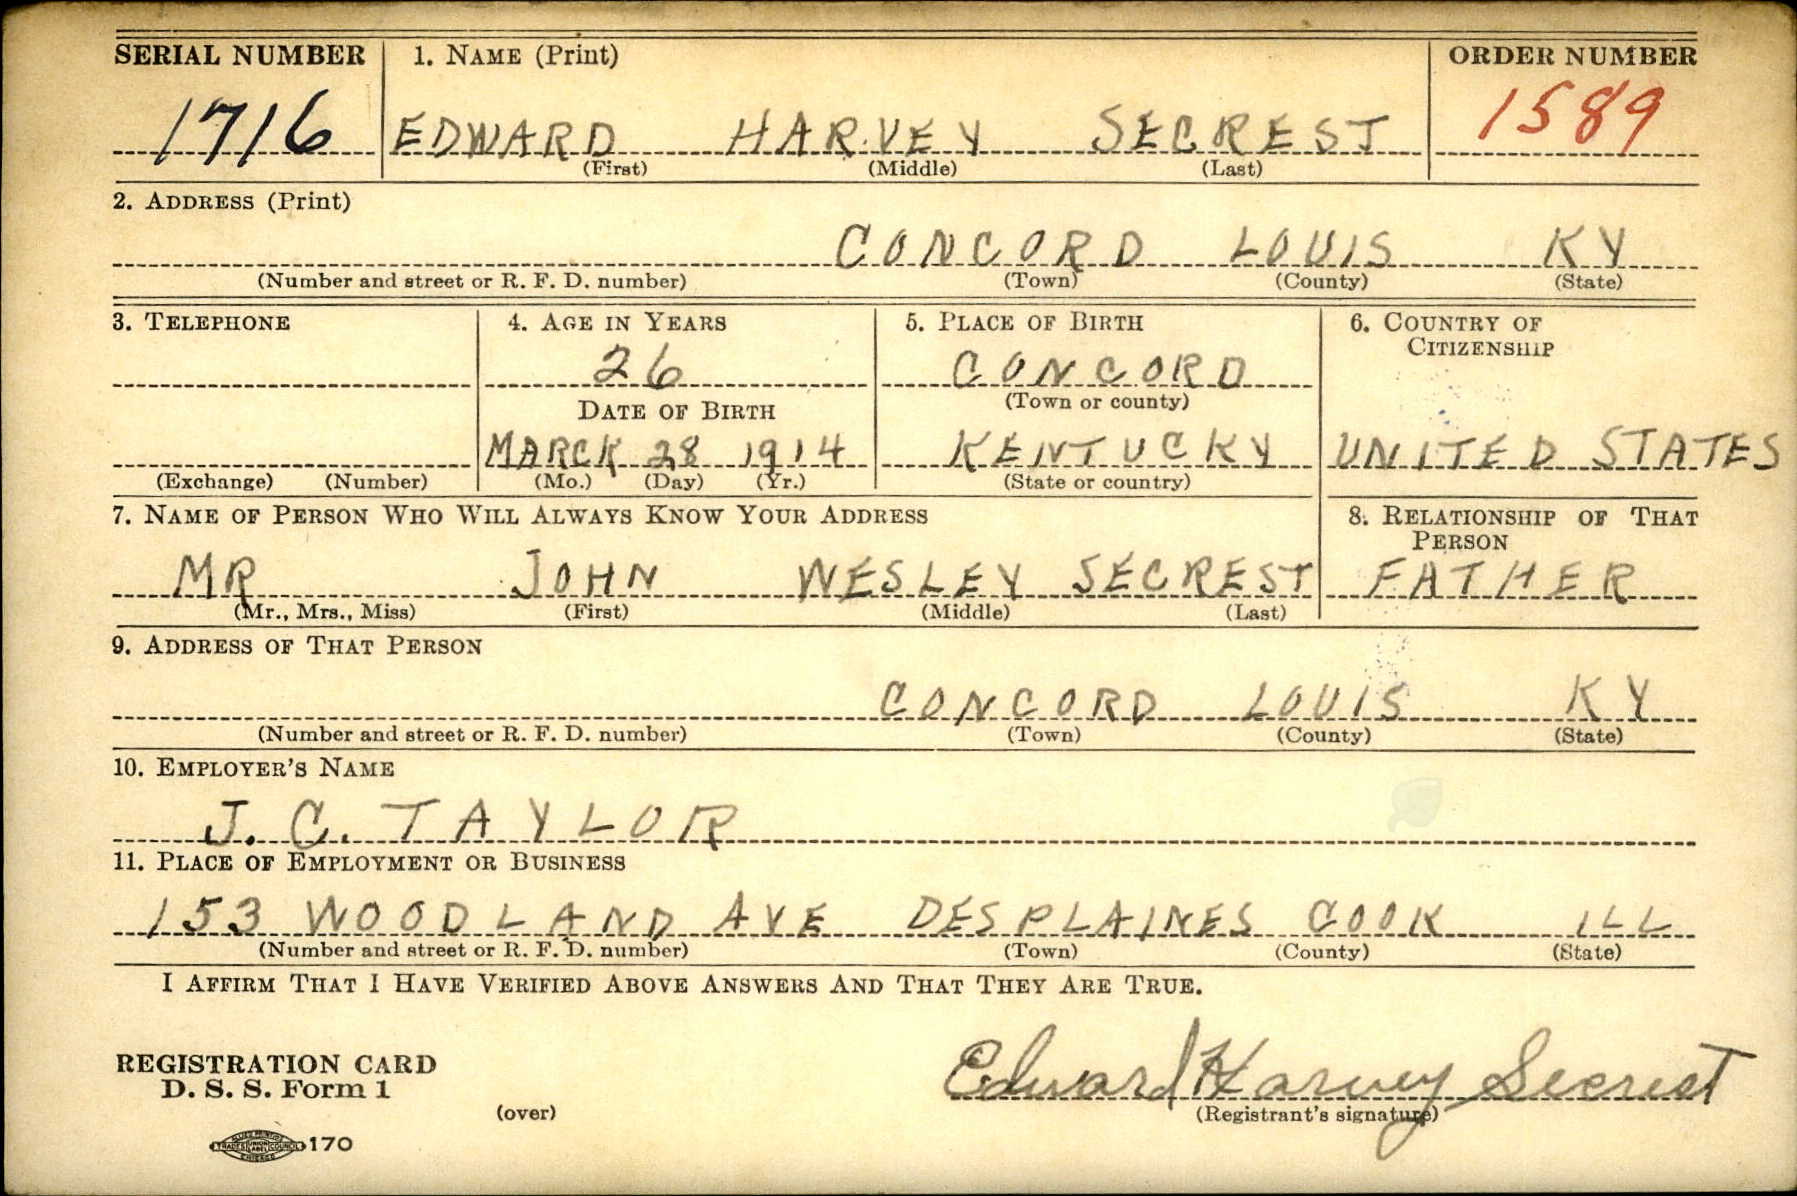 SERIAL NUMBER 1. NAME (Print) ORDER NUMBER
1716 EDWARD HARVEY SECREST 1589
(First) (Middle) (Last)
2. ADDRESS (Print)
CONCORD LOUIS KY
(Number and street or R. F. D. number) (Town) (County) (State)
3. TELEPHONE 4. AGE IN YEARS 5. PLACE OF BIRTH 6. COUNTRY OF
CITIZENSHIP
26 CONCORD
DATE OF BIRTH (Town or county)
MARCK 28 1914 KENTUCKY UNITED STATES
(Exchange) (Number) (Mo.) (Day) (Yr.) (State or country)
7. NAME OF PERSON WHO WILL ALWAYS KNOW YOUR ADDRESS 8. RELATIONSHIP OF THAT
PERSON
MR JOHN WESLEY SECREST FATHER
(Mr., Mrs., Miss) (First) (Middle) (Last)
9. ADDRESS OF THAT PERSON
CONCORD LOUIS KY
(Number and street or R. F. D. number) (Town) (County) (State)
10. EMPLOYER'S NAME
J. C. TAYLOR
11. PLACE OF EMPLOYMENT OR BUSINESS
153 WOODLAND AVE DESPLAINES COOK ILL
(Number and street or R. F. D. number) (Town) (County) (State)
I AFFIRM THAT I HAVE VERIFIED ABOVE ANSWERS AND THAT THEY ARE TRUE.
REGISTRATION CARD
D. S. S. Form 1 Edward Harvey Secrest
(over) (Registrant's signature)
TRADES UNION LABEL COUNCIL 170